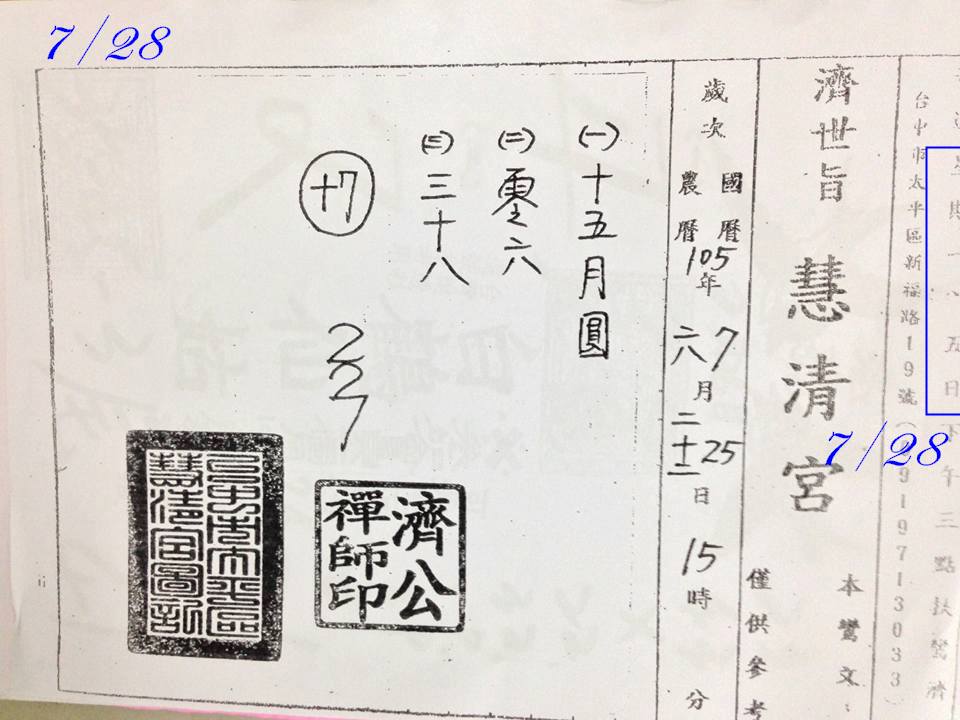 7/28
台中市太平區新福路19號(
91971303
星期一、五日下午三點扶鸞濟
7/28
濟世旨 慧清宮
本鸞文:
僅供參考
歲次 國曆 105年 7月 25日 15時 分
農曆 六月 二十二日
(一)十五月圓
(二)零六
(三)三十八
十7
227
濟公禪師印
台中市太平區慧清宮圖記